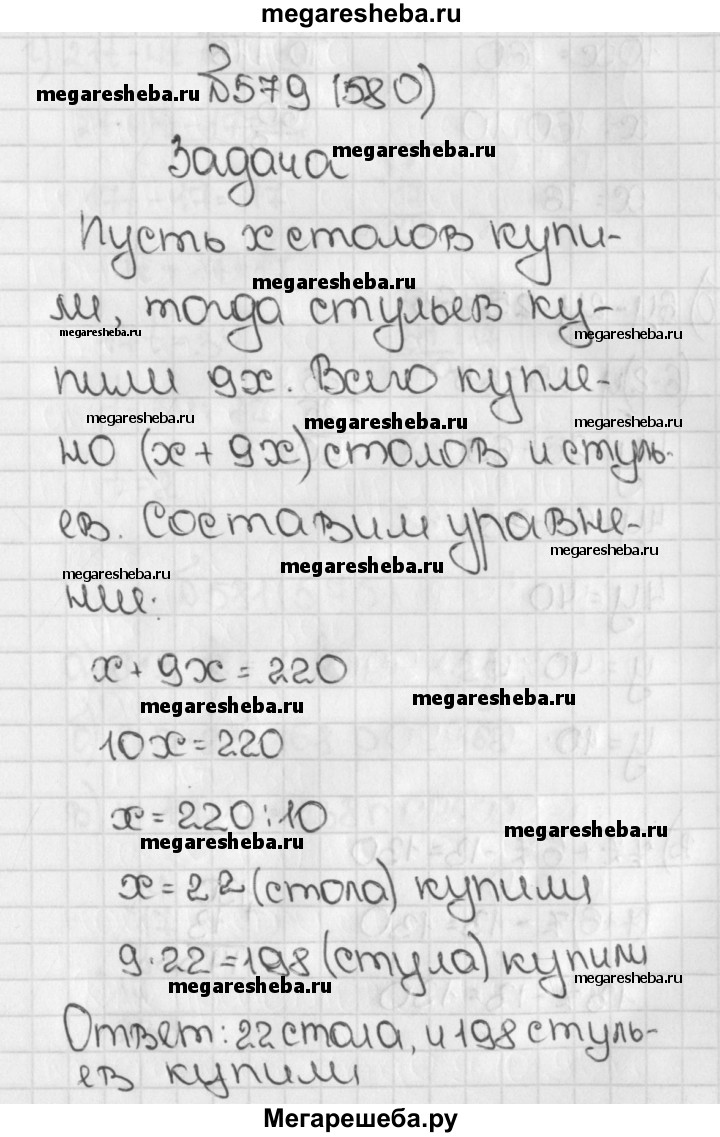 megaresheba.ru
№579 (580)
megaresheba.ru
Задача
megaresheba.ru
Пусть x столов купи-
megaresheba.ru
ли, тогда стульев ку-
megaresheba.ru
megaresheba.ru
пили 9x. Всего купле-
megaresheba.ru
megaresheba.ru
megaresheba.ru
но (x + 9x) столов и стуль-
ев. Составим уравне-
megaresheba.ru
megaresheba.ru
megaresheba.ru
ние:
x + 9x = 220
megaresheba.ru
megaresheba.ru
10x = 220
x = 220 : 10
megaresheba.ru
megaresheba.ru
x = 22 (стола) купили
9 · 22 = 198 (стула) купили
megaresheba.ru
megaresheba.ru
Ответ: 22 стола, и 198 стуль-
ев купили
Мегарешеба.ру